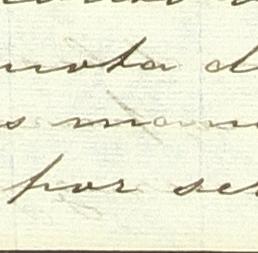 nota d
s man
por ser